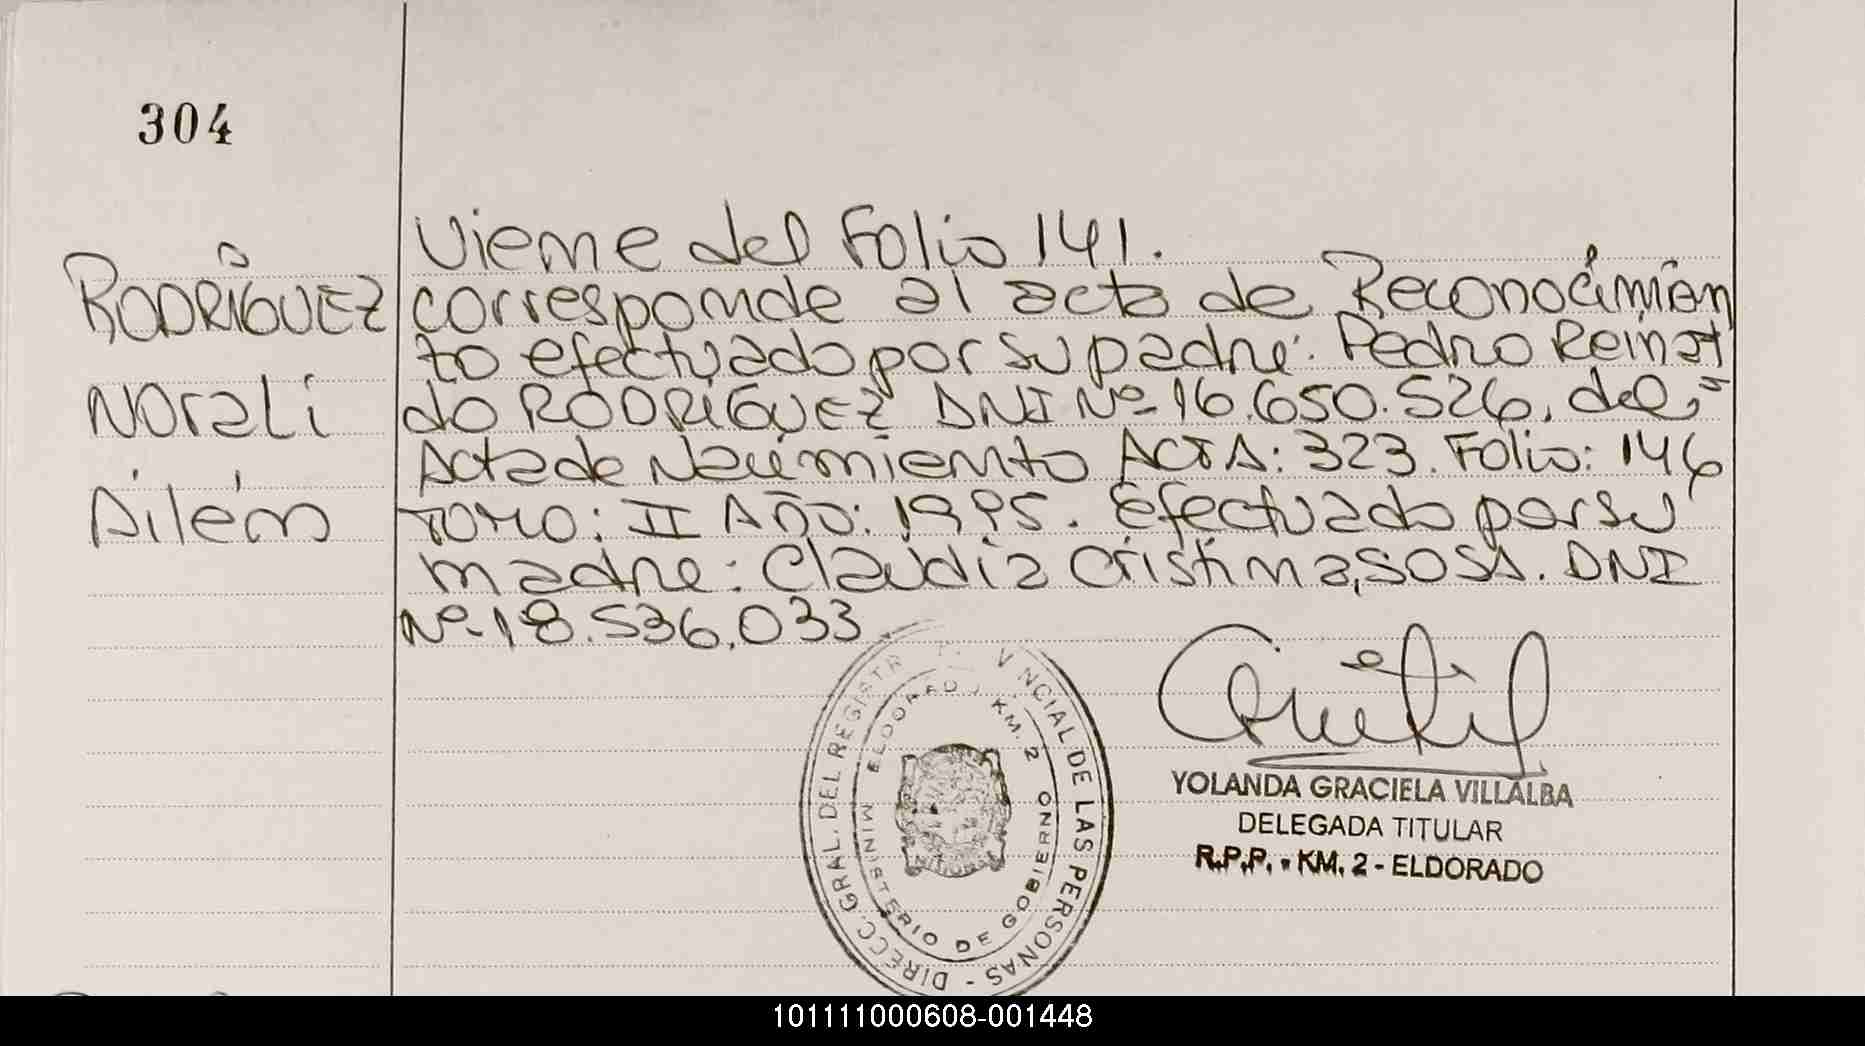 304
RODRÍGUEZ
Norali
Ailém
Viene del Folio 141.
corresponde al acta de Reconocimien
to efectuado por su padre: Pedro Reinal
do RODRÍGUEZ DNI Nº-16.650.526. del
Acta de Nacimiento ACTA: 323. Folio: 146
TOMO: II AÑO: 1995. Efectuado por su
madre: Claudia Cristina, SOSA. DNI
Nº-18.536.033
DIRECC. GRAL. DEL REGISTR VINCIAL DE LAS PERSONAS -
MINISTERIO DE GOBIERNO
ELDORADO KM. 2
YOLANDA GRACIELA VILLALBA
DELEGADA TITULAR
R.P.P. - KM. 2 - ELDORADO
101111000608-001448